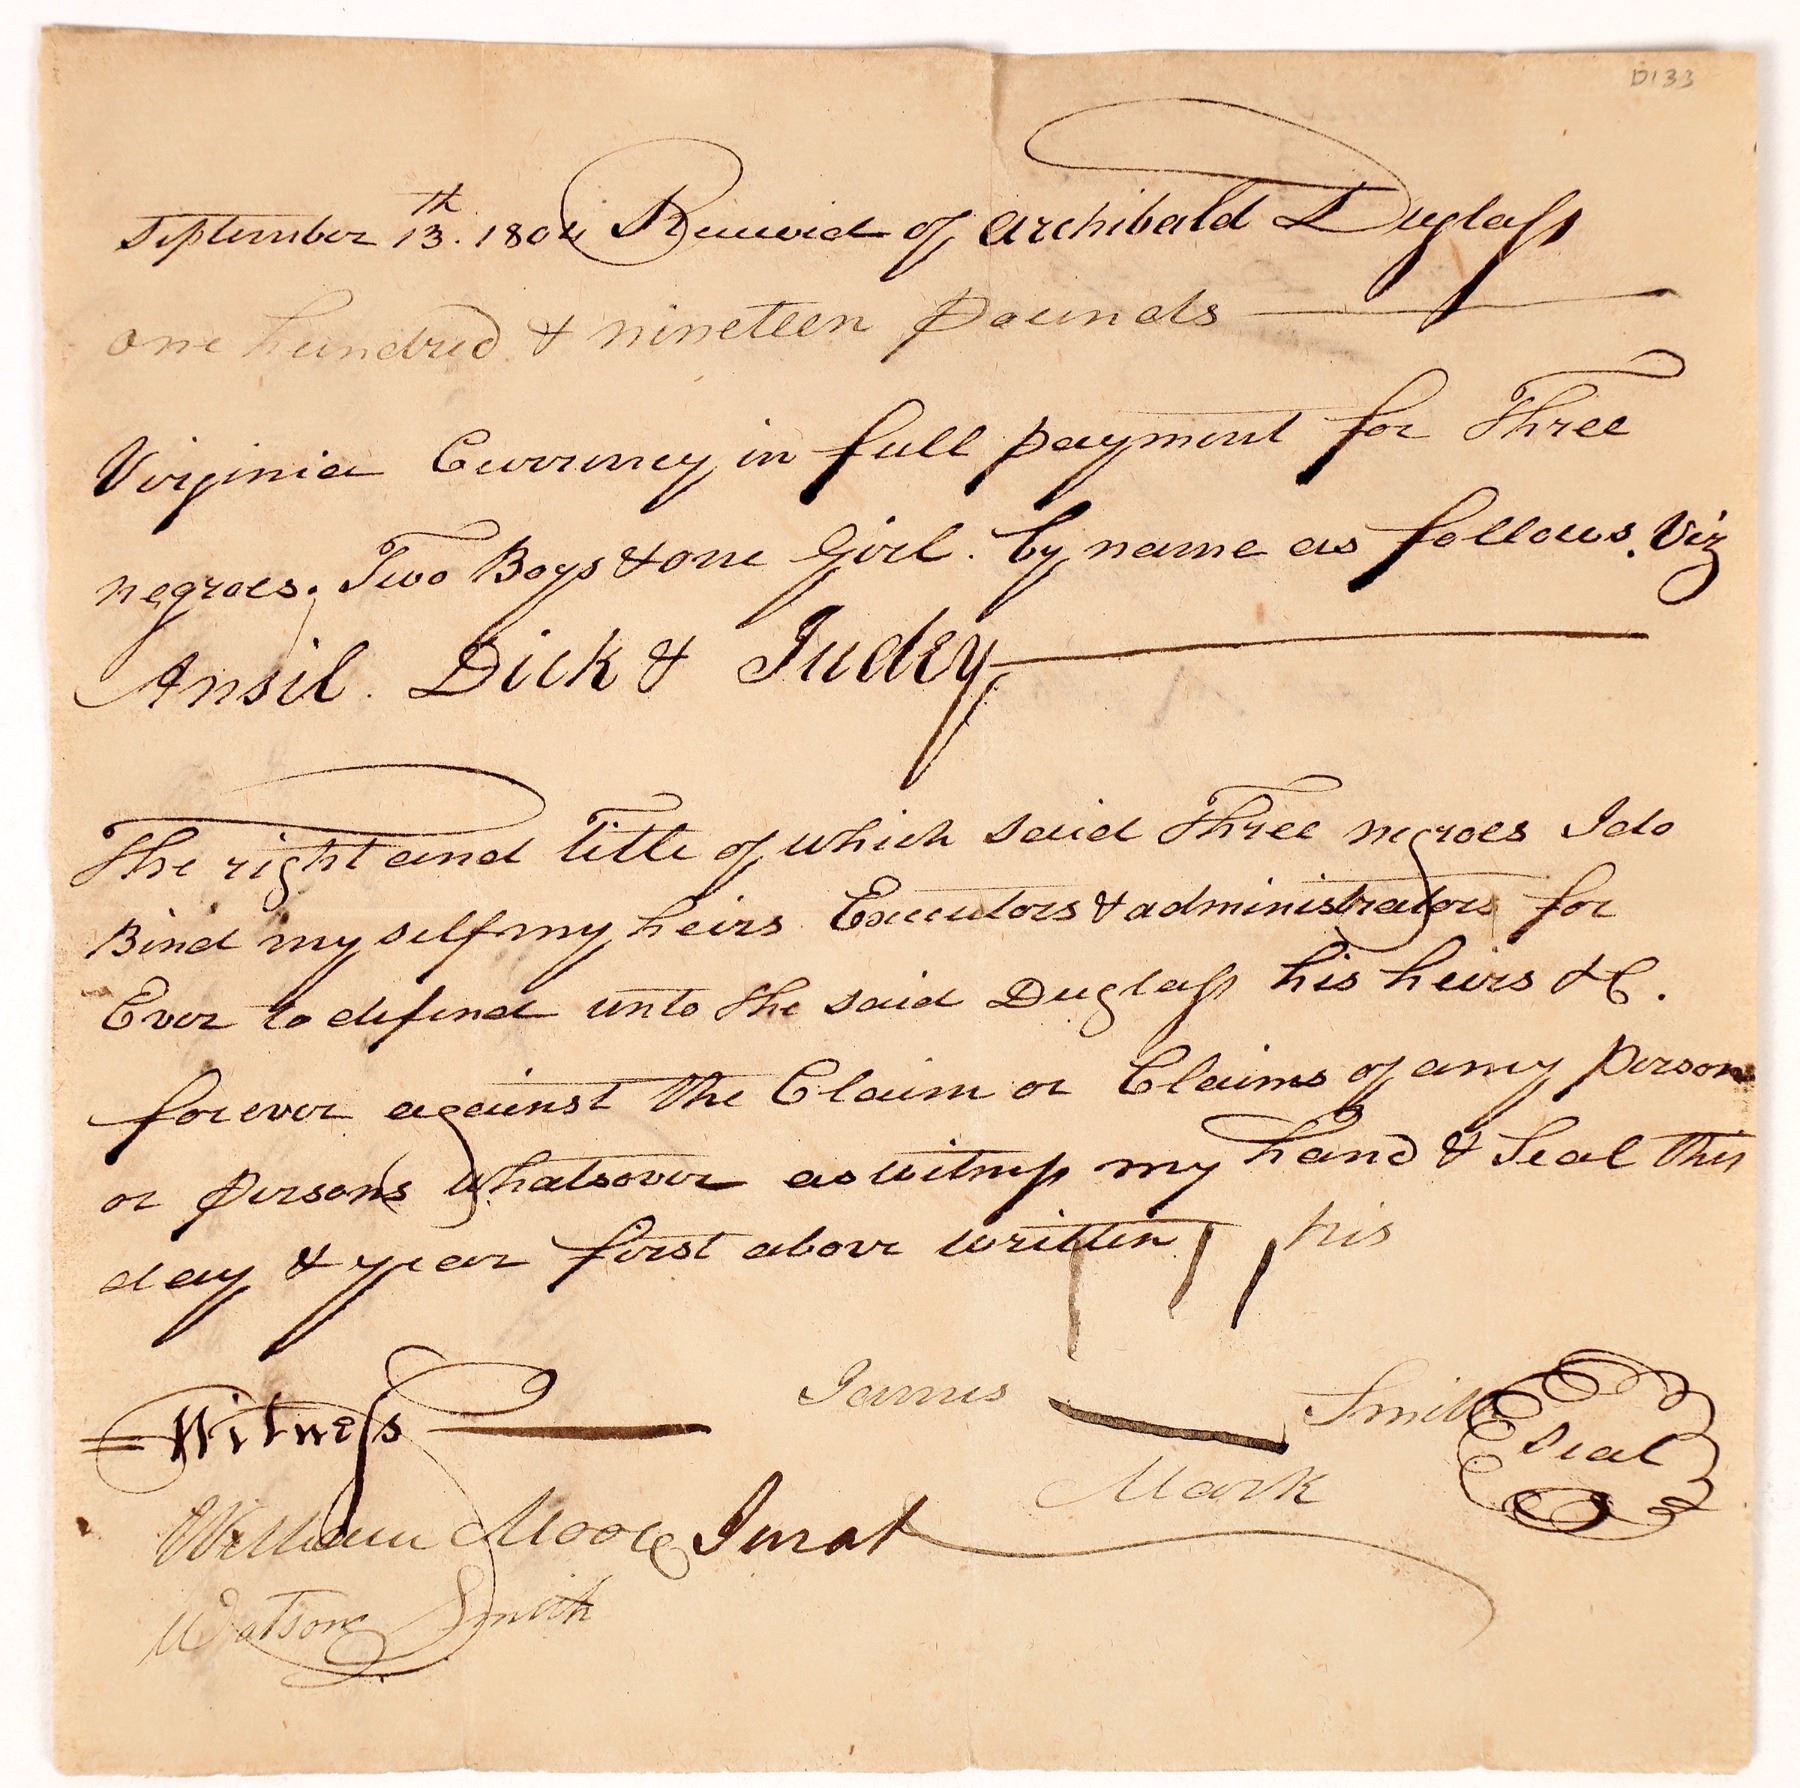 D133
September 13th. 1804 Received of Archibald Duglass
one hundred & nineteen Pounds
Virginia Currency in full payment for Three
negroes. Two Boys & one Girl. by name as follows. Viz
Ansil. Dick & Judey
The right and title of which said Three negroes I do
Bind my self my heirs Executors & administrators for
Ever to defend unto the said Duglass his heirs &C.
forever against the Claim or Claims of any Person
or Persons Whatsover as witness my hand & Seal this
day & year first above written his
James Smith Seal
Witness
Mark
William Moore Jurat
Watson Smith